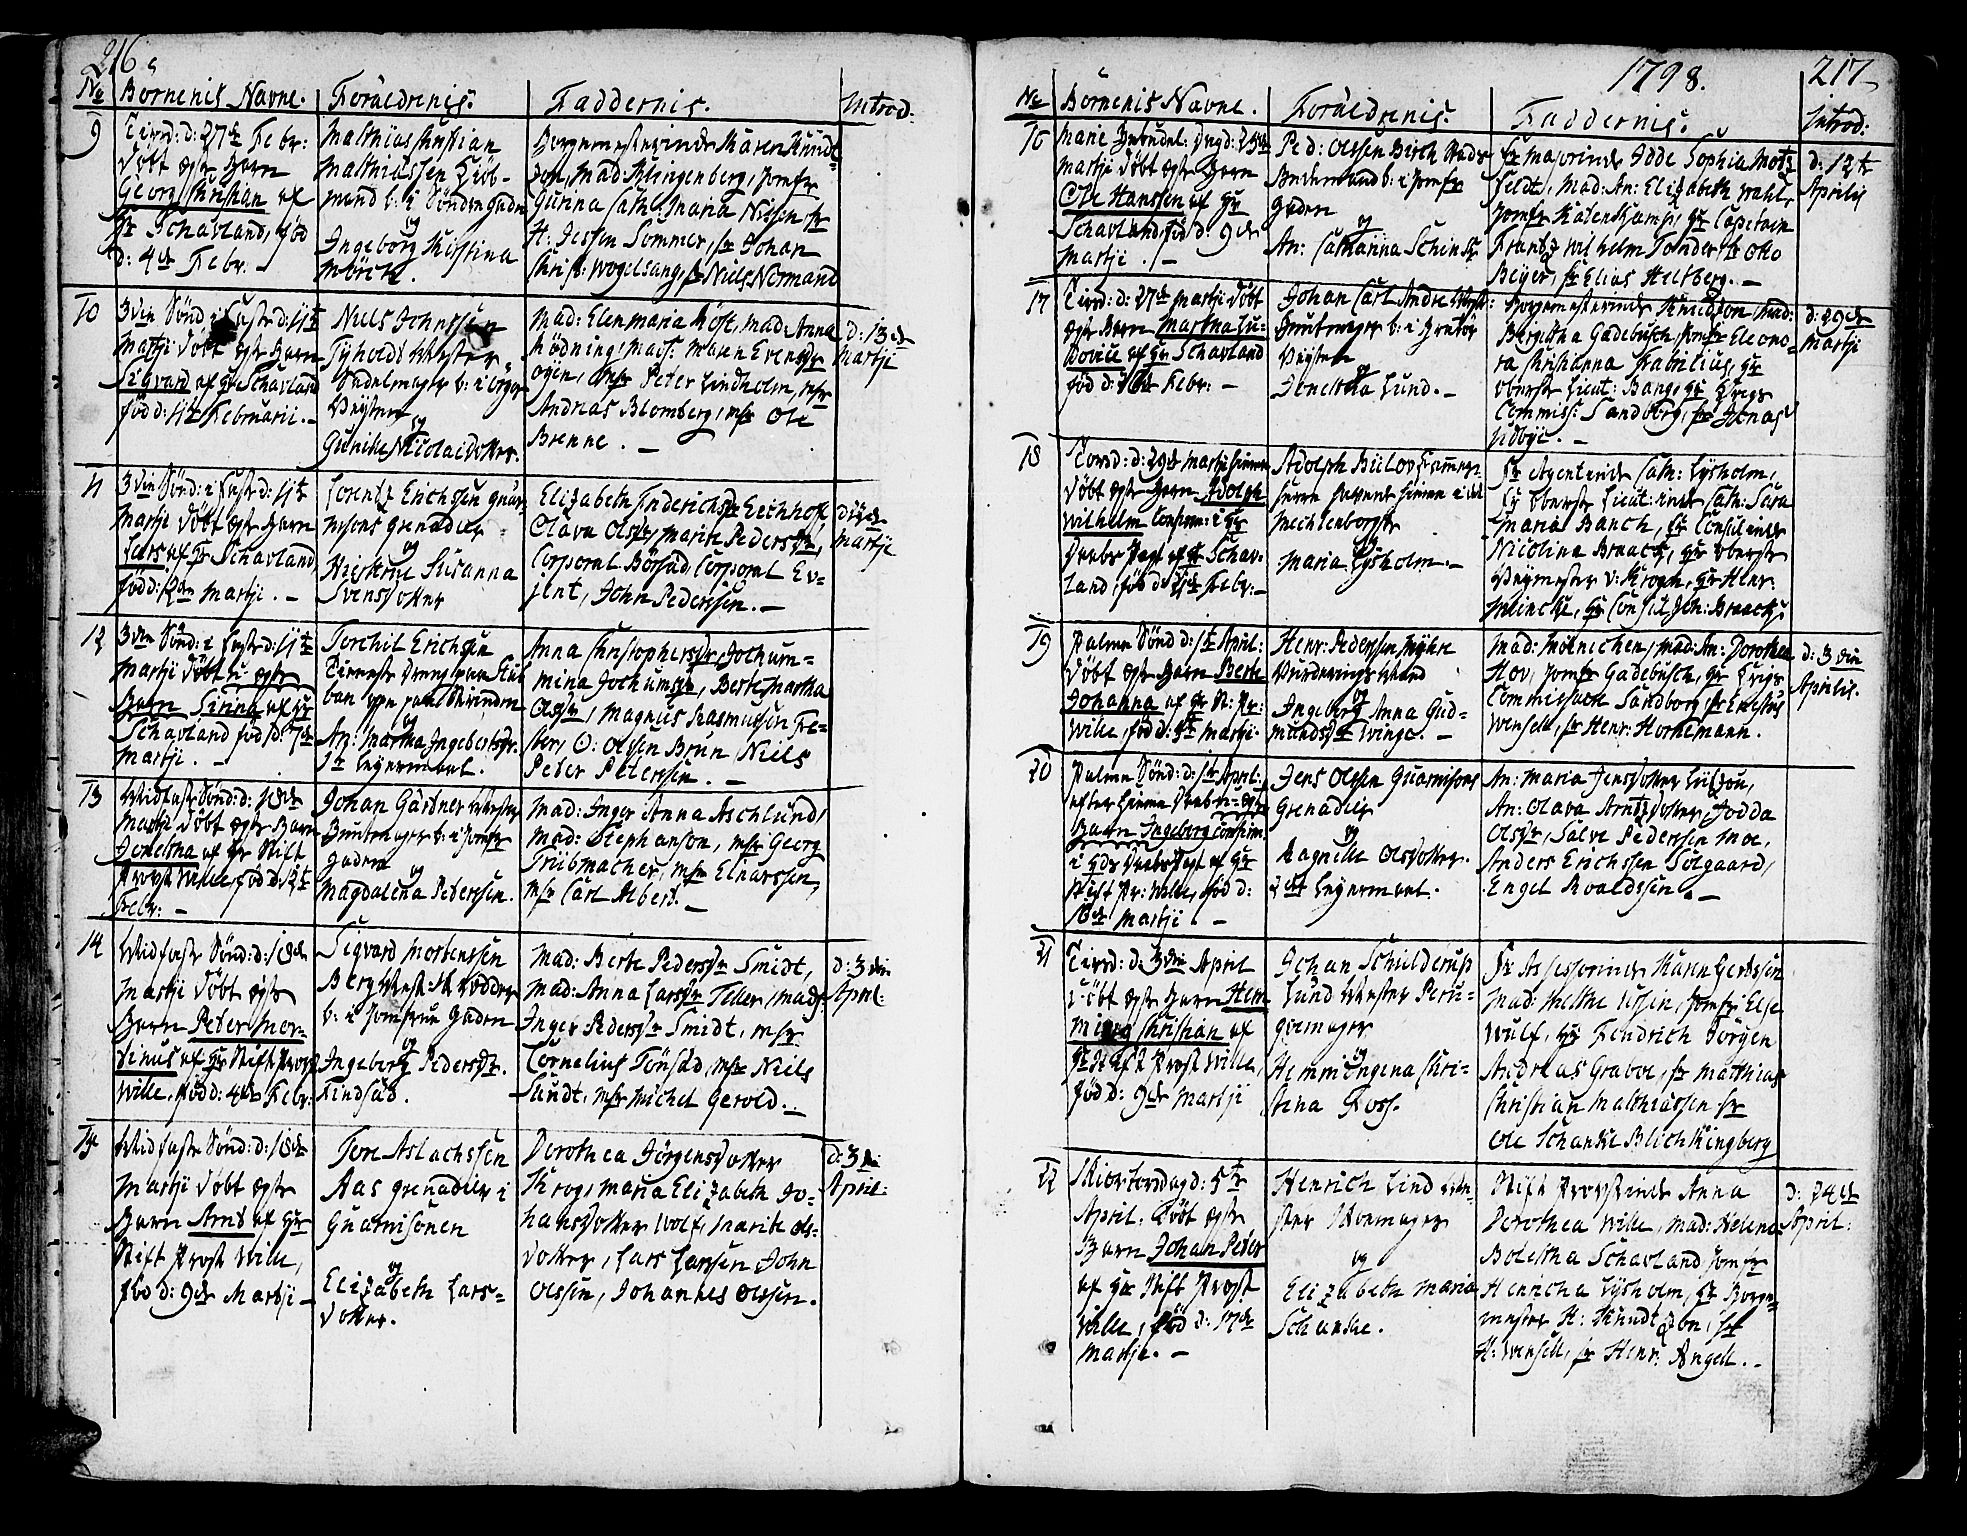 216
No Börnenis Navne. Forældrenis. Faddernis. Introd:
9
Tirsd: d: 27de Febr:
Döbt ægte Barn
Georg Christian af
Hr Schavland, föd
d: 4de Febr:
Matthias Christian
Matthiassen Kiöb-
mand b: i Söndregaden
og
Ingeborg Christina
Mörch.
Borgemesterinde Karen Knudt-
zon, Mad: Klingenberg, Jomfr
Gunna Cath: Maria Nissen, Hr
H: Jessen Sommer, Hr Johan
Christ: Vogelsang, Hr Niels Normand
10
3die Sönd: i Faste d: 11te
Martji Döbt ægte Barn
Sigvard af Hr Schavland
föd d: 11te Februarii. -
Niels Johnssen
Tyholdt Mester
Sadelmager b: i
og
Gunilde Nicolaidotter.
Mad: Elen Maria Höst, Mad: Anna
Hödning, Mad: Maren Evensdr
Öyen, Msr Peter Lindholm, Msr
Andreas Blomberg, Msr Ole
Brenne. -
d: 13de
Martji
11
3die Sönd: i Faste d: 11te
Martji Döbt ægte Barn
Lars af Hr Schavland
föd d: 2den Martji. -
Lorentz Erichssen Guar-
nisons Grenadier
og
Susanna
Svensdotter
Elizabeth Friderichsdr Eichhoff,
Olava Olsdr, Marite Pedersdr,
Corporal Börsad Corporal Ev-
jent, John Pederssen. -
Martji
12
3die Sönd: i Faste d: 11te
Martji Döbt u-ægte
Barn Sirina af Hr
Schavland föd d: 7de
Martji. -
Torchil Erichssen
og
An: Martha Ingebertsdr.
1te Leyermaal.
Anna Christophersdr, Jochum-
mina Jochumsdr, Berte Martha
Olsdr, Magnus Rasmussen Fe-
ster, O: Olssen Brun, Niels
Peter Peterssen. -
13
Midfaste Sönd: d: 18de
Martji Döbt ægte Barn
Jenetta af Hr Stift
Provst Wille, föd d: 12te
Febr: -
Johan Gärdner Mester
Buntmager b: i Jomfr
Gaden
og
Magdalena Peterssen.
Mad: Inger Anna Aschlund,
Mad: Stephanson, Msr Georg
Trübmacher, Msr Elnarssen,
Msr Carl Albert. -
14
Midfaste Sönd: d: 18de
Martji Döbt ægte
Barn Peter Mor-
tinus af Hr Stift Provst
Wille, föd d: 4de Febr:
Sigvard Mortenssen
Berg Mest: Skrædder
b: i Jomfrue Gaden
og
Ingeberg Pedersdr.
Findsad.
Mad: Berte Pedersdr Smidt,
Mad: Anna Larsdr Teller, Mad:
Inger Pedersdr Smidt, Msr
Cornelius Tönsad, Msr Niels
Slundt, Msr Michel Gerold. -
d: 3die
April:
15
Midfaste Sönd: d: 18de
Martji Döbt ægte
Barn Arnt af Hr
Stift Provst Wille,
föd d: 9de Martji -
Tore Aslachssen
Aas Grenadier i
Guarnisonen
og
Elizabeth Lars-
dotter.
Dorothea Jörgensdotter
Krog, Maria Elizabeth Jo-
hansdotter Wolf, Marite Ols-
dotter, Lars Larssen, John
Olssen, Johannes Olssen.
d: 3die
April:
1798. 217
No Börnenis Navne. Forældrenis. Faddernis. Introd:
16
Marie Bebudel: Dag d: 25de
Martji Döbt ægte Barn
Ole Hanssen af Hr
Schavland, föd d: 9de
Martji. -
Ped: Olssen Birch
b: i Jomfr
Gaden
og
An: Catharina Schinck
Fr Majorinde Idde Sophia Motz-
feldt, Mad: An: Elizabeth Wahl,
Jomfr Kaleuskamp, Hr Capitain
Frantz Wilhelm Tonder, Hr Otto
Beyer, Hr Elias Heltberg. -
d: 12te
Aprilis
17
Tirsd: d: 27de Martji Döbt
ægte Barn Martha Lu-
dovica af Hr Schavland
föd d: 16de Febr: -
Johan Carl Andre Mest:
Buntmager b: i
og
Jenetta Lund. -
Borgemesterinde Knudtzon, Mad:
Bergitha Gadebusch, Jomfr Eleono-
ra Christianna Fabritius, Hr
Oberste Lieut: Bang, Hr Krigs
Commiss: Sandberg, Hr Jonas
Lidbye. -
d: 29de
Martji
18
Torsd: d: 29de Martji hiemme
Döbt ægte Barn Adolph
Wilhelm Confirm: i Hr
Daabs Pagt af Hr Schav-
land, föd d: 21de Febr: -
Adolph Bülov
Mechlenborgske
og
Maria Lysholm. -
Fr Agentinde Cath: Lysholm,
Fr Oberste Lieut:inde Cath: Sara
Maria Banch, Fr Consulinde
Nicolina Braack, Hr Oberste
Veymester v: Krogh, Hr Henr:
Meincke, Hr Consul Joh: Braack,
19
Palme Sönd: d: 1te April:
Döbt ægte Barn Berte
Johanna af Hr St: Pr:
Wille, föd d: 5te Martji.
Henr: Pederssen Myhre
Vurderings Mand
og
Ingeberg Anna Gud-
mundsdr Winge. -
Mad: Mölnichen, Mad: An: Dorothea
Hov, Jomfr Gadebusch, Hr Krigs
Commissair Sandborg, Hr Ernstus
Wensell, Hr Henr: Hornemann.
d: 3die
Aprilis.
20
Palme Sönd: d: 1te April:
efter hiemme Daab u-ægte
Barn Ingeberg Confirm:
i Hds Daabs Pagt af Hr
Stift Pr: Wille, föd d:
18de Martji. -
Jens Olssen Guarnisons
Grenadier
og
Ragnille Olsdotter.
2det Leyermaal.
An: Maria Jensdotter Liljou,
An: Olava Arntzdotter, Jodda
Olsdr, Salve Pederssen Moe,
Anders Erichssen Solgaard,
Engel Roaldssen. -
21
Tirsd: d: 3die April
Döbt ægte Barn Hem-
ming Christian af
Hr Stift Provst Wille,
föd d: 9de Martji
Johan Schielderup
Lund Mester Peru-
qvemager
og
Hemmingena Chri-
stina Foss.
Fr Assessorinde Karen Gertssen
Mad: Mette Ursin, Jomfr Else
Wulf, Hr Fendrich Jörgen
Andreas Graboe, Hr Matthias
Christian Matthiassen Hr
Ole Schanke Blich Ringberg
22
Skiertorsdag d: 5te
April: Döbt ægte
Barn Johan Peter
af Hr Stift Provst
Wille, föd d: 17de
Martji. -
Henrich Lind Me-
ster Skoemager
og
Elizabeth Maria
Schanke.
Stift Provstinde Anna
Dorothea Wille, Mad: Helene
Bolettha Schavland Jomfr
Henricha Lysholm, Hr Borge-
mester H: Knudtzon, Hr
H: Wensell, Hr Henr: Angell. -
d: 24de
April: